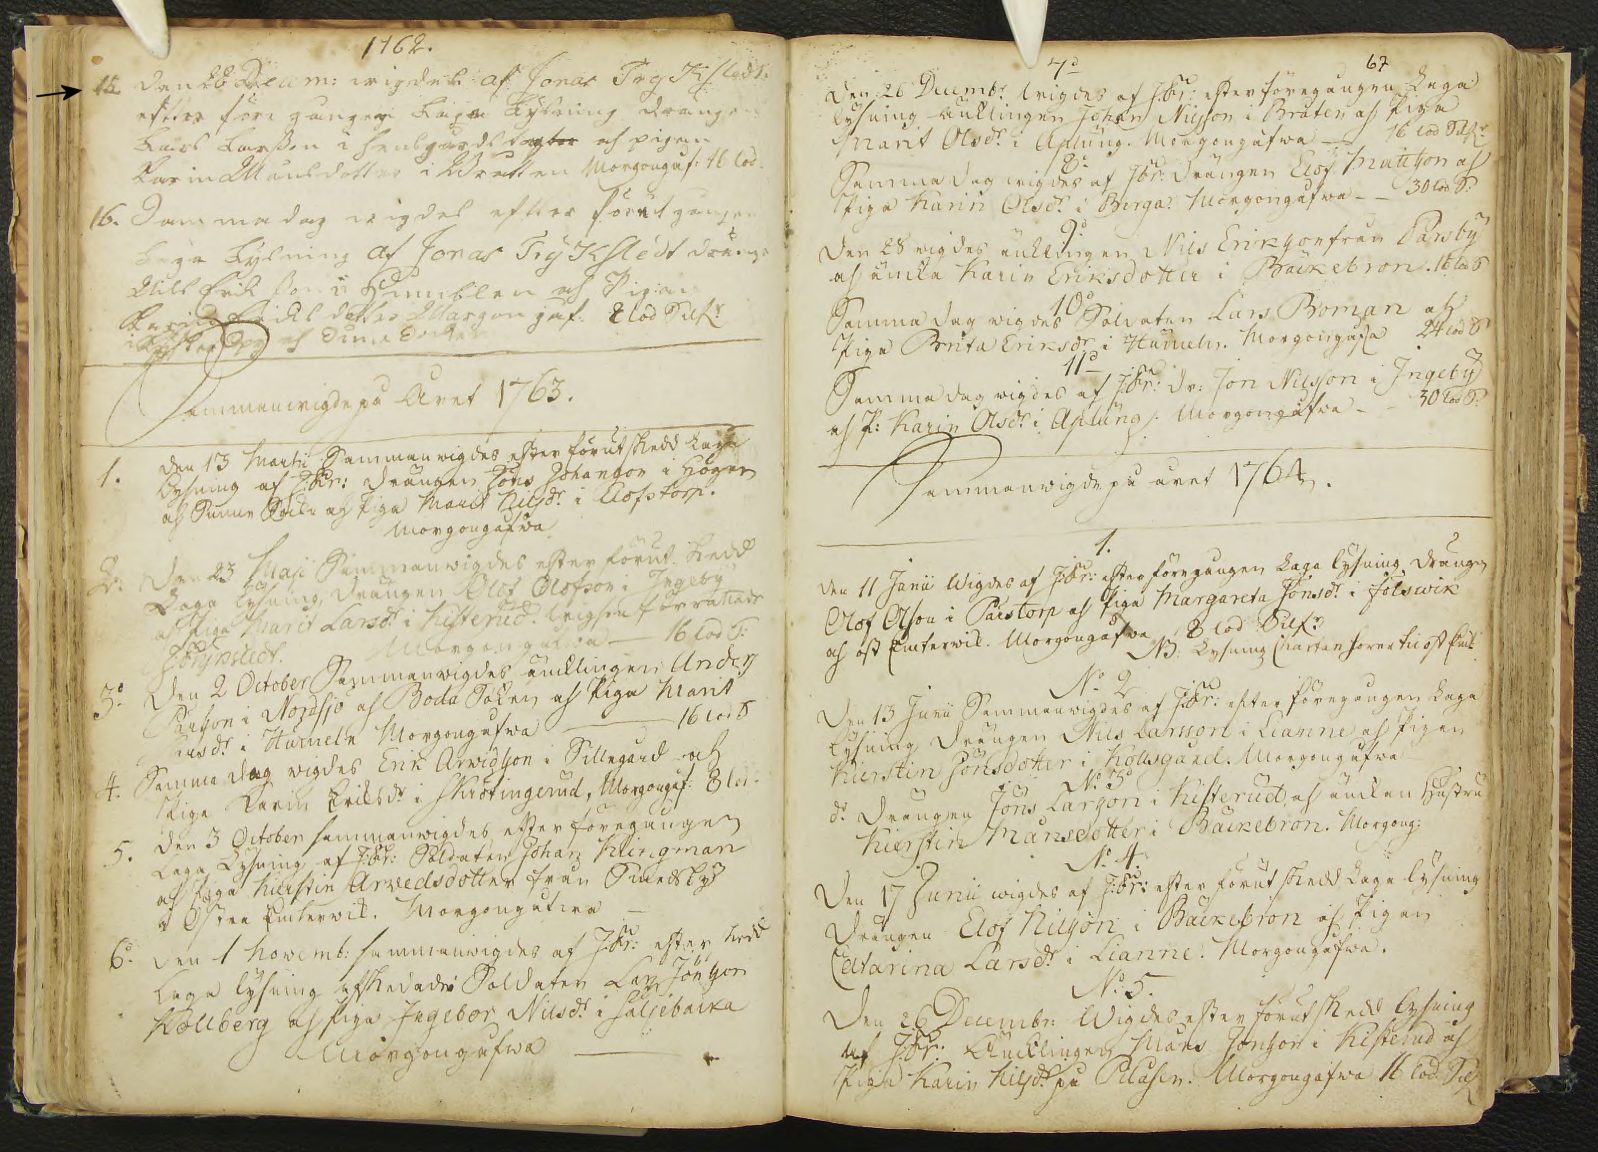 1762.
15. den 26 Decem: wigdes af Jonas Fryksstedt
efter före gången laga lysning drängen
Lars Larsson i och pigan
Karin Månsdotter i Morgongåf: 16 lod.
16. Samma dag wigdes efter förut gången
laga lysning af Jonas Fryksstedt dräng
Nils Erik sson i Humblen och Pigan
Karin Ericksdotter Morgon gåf. 8 lod Silfr
Sammanwigde på Året 1763.
1. den 13 Martii Sammanwigdes efter förut skedd Laga
lysning af J:Br: drängen Jöns Johanson i Högen
och Sunne Sockn och Piga Marit Nilsdr i Elofstorp.
Morgongåfwa
2. Den 23 Maji Sammanwigdes efter förut skedd
Laga lysning, drängen Olof Olofson i Ingeby
och Piga Marit Larsdr i Kisterud.
Morgongåfwa — 16 lod S:
3. Den 2 October Sammanwigdes änklingen Anders
i Nordsjö af Boda Soken och Piga Marit
i Humeln Morgongåfwa — 16 lod S
4. Samma dag wigdes Erik Arwidson i Sillegård och
Piga Karin Ericksdr i Skrötingerud, Morgongåf: 8 lod.
5. den 3 October sammanwigdes efter föregången
Laga Lysning af J:Br: Soldaten Johan Klingman
och Piga Kierstin Arwedsdotter från Smedsby
i Östra Emterwik. Morgongåfwa —
6. den 1 Novemb: sammanwigdes af J:Br: efter skedd
laga lysning afskedade Soldaten Lars Jönson
Kollberg och Piga Ingebor Nilsdr i Säljebacka
Morgongåfwa —
67
7.
Den 26 Decembr wigdes af J:Br: efter föregången Laga
lysning änklingen Johan Nilsson i Bråten och Piga
Marit Olsdr i Aplung. Morgongåfwa — 16 lod Silfr
8.
Samma dag wigdes af J:Br: drängen Elof Mattson och
Piga Karin Olsdr i Berga. Morgongåfwa — 30 lod S:
9.
Den 28 wigdes änklingen Nils Erikson från Pärsby
och änka Karin Eriksdotter i Bäckebron. 16 lod S
10.
Samma dag wigdes Soldaten Lars Boman och
Piga Brita Eriksdr i Humeln. Morgongåfwa 24 lod S
11.
Samma dag wigdes af J:Br: dr: Jon Nilsson i Ingeby
och P: Karin Olsdr i Aplung. Morgongåfwa — 30 lod S:
Sammanwigde på året 1764.
1.
den 11 Junii Wigdes af J:Br: efter föregången Laga lysning, Drängen
Olof Olson i Påistorp och Piga Margareta Jönsdr i Folswik
och öst Emterwik. Morgongåfwa 8 lod Silfr
NB. Lysning
No 2
Den 13 Junii Sammanwigdes af J:Br: efter föregången Laga
Lysning Drängen Nils Larsson i Lianne och Pigan
Kierstin Jonsdotter i Kollsgård. Morgongåfwa
No 3
do Drängen Jöns Larson i Kisterud, och änkan Hustru
Kierstin Månsdotter i Bäckebron. Morgong:
No 4.
Den 17 Junii wigdes af J:Br: efter förut skedd Laga lysning
Drängen Elof Nilson i Bäckebron och Pigan
Catarina Larsdr i Lianne. Morgongåfwa.
No 5.
Den 26 Decembr: Wigdes efter förut skedd lysning
af J:Br: Änklingen Måns Jonson i Kisterud och
Piga Karin Nilsdr på Morgongåfwa 16 lod Silf